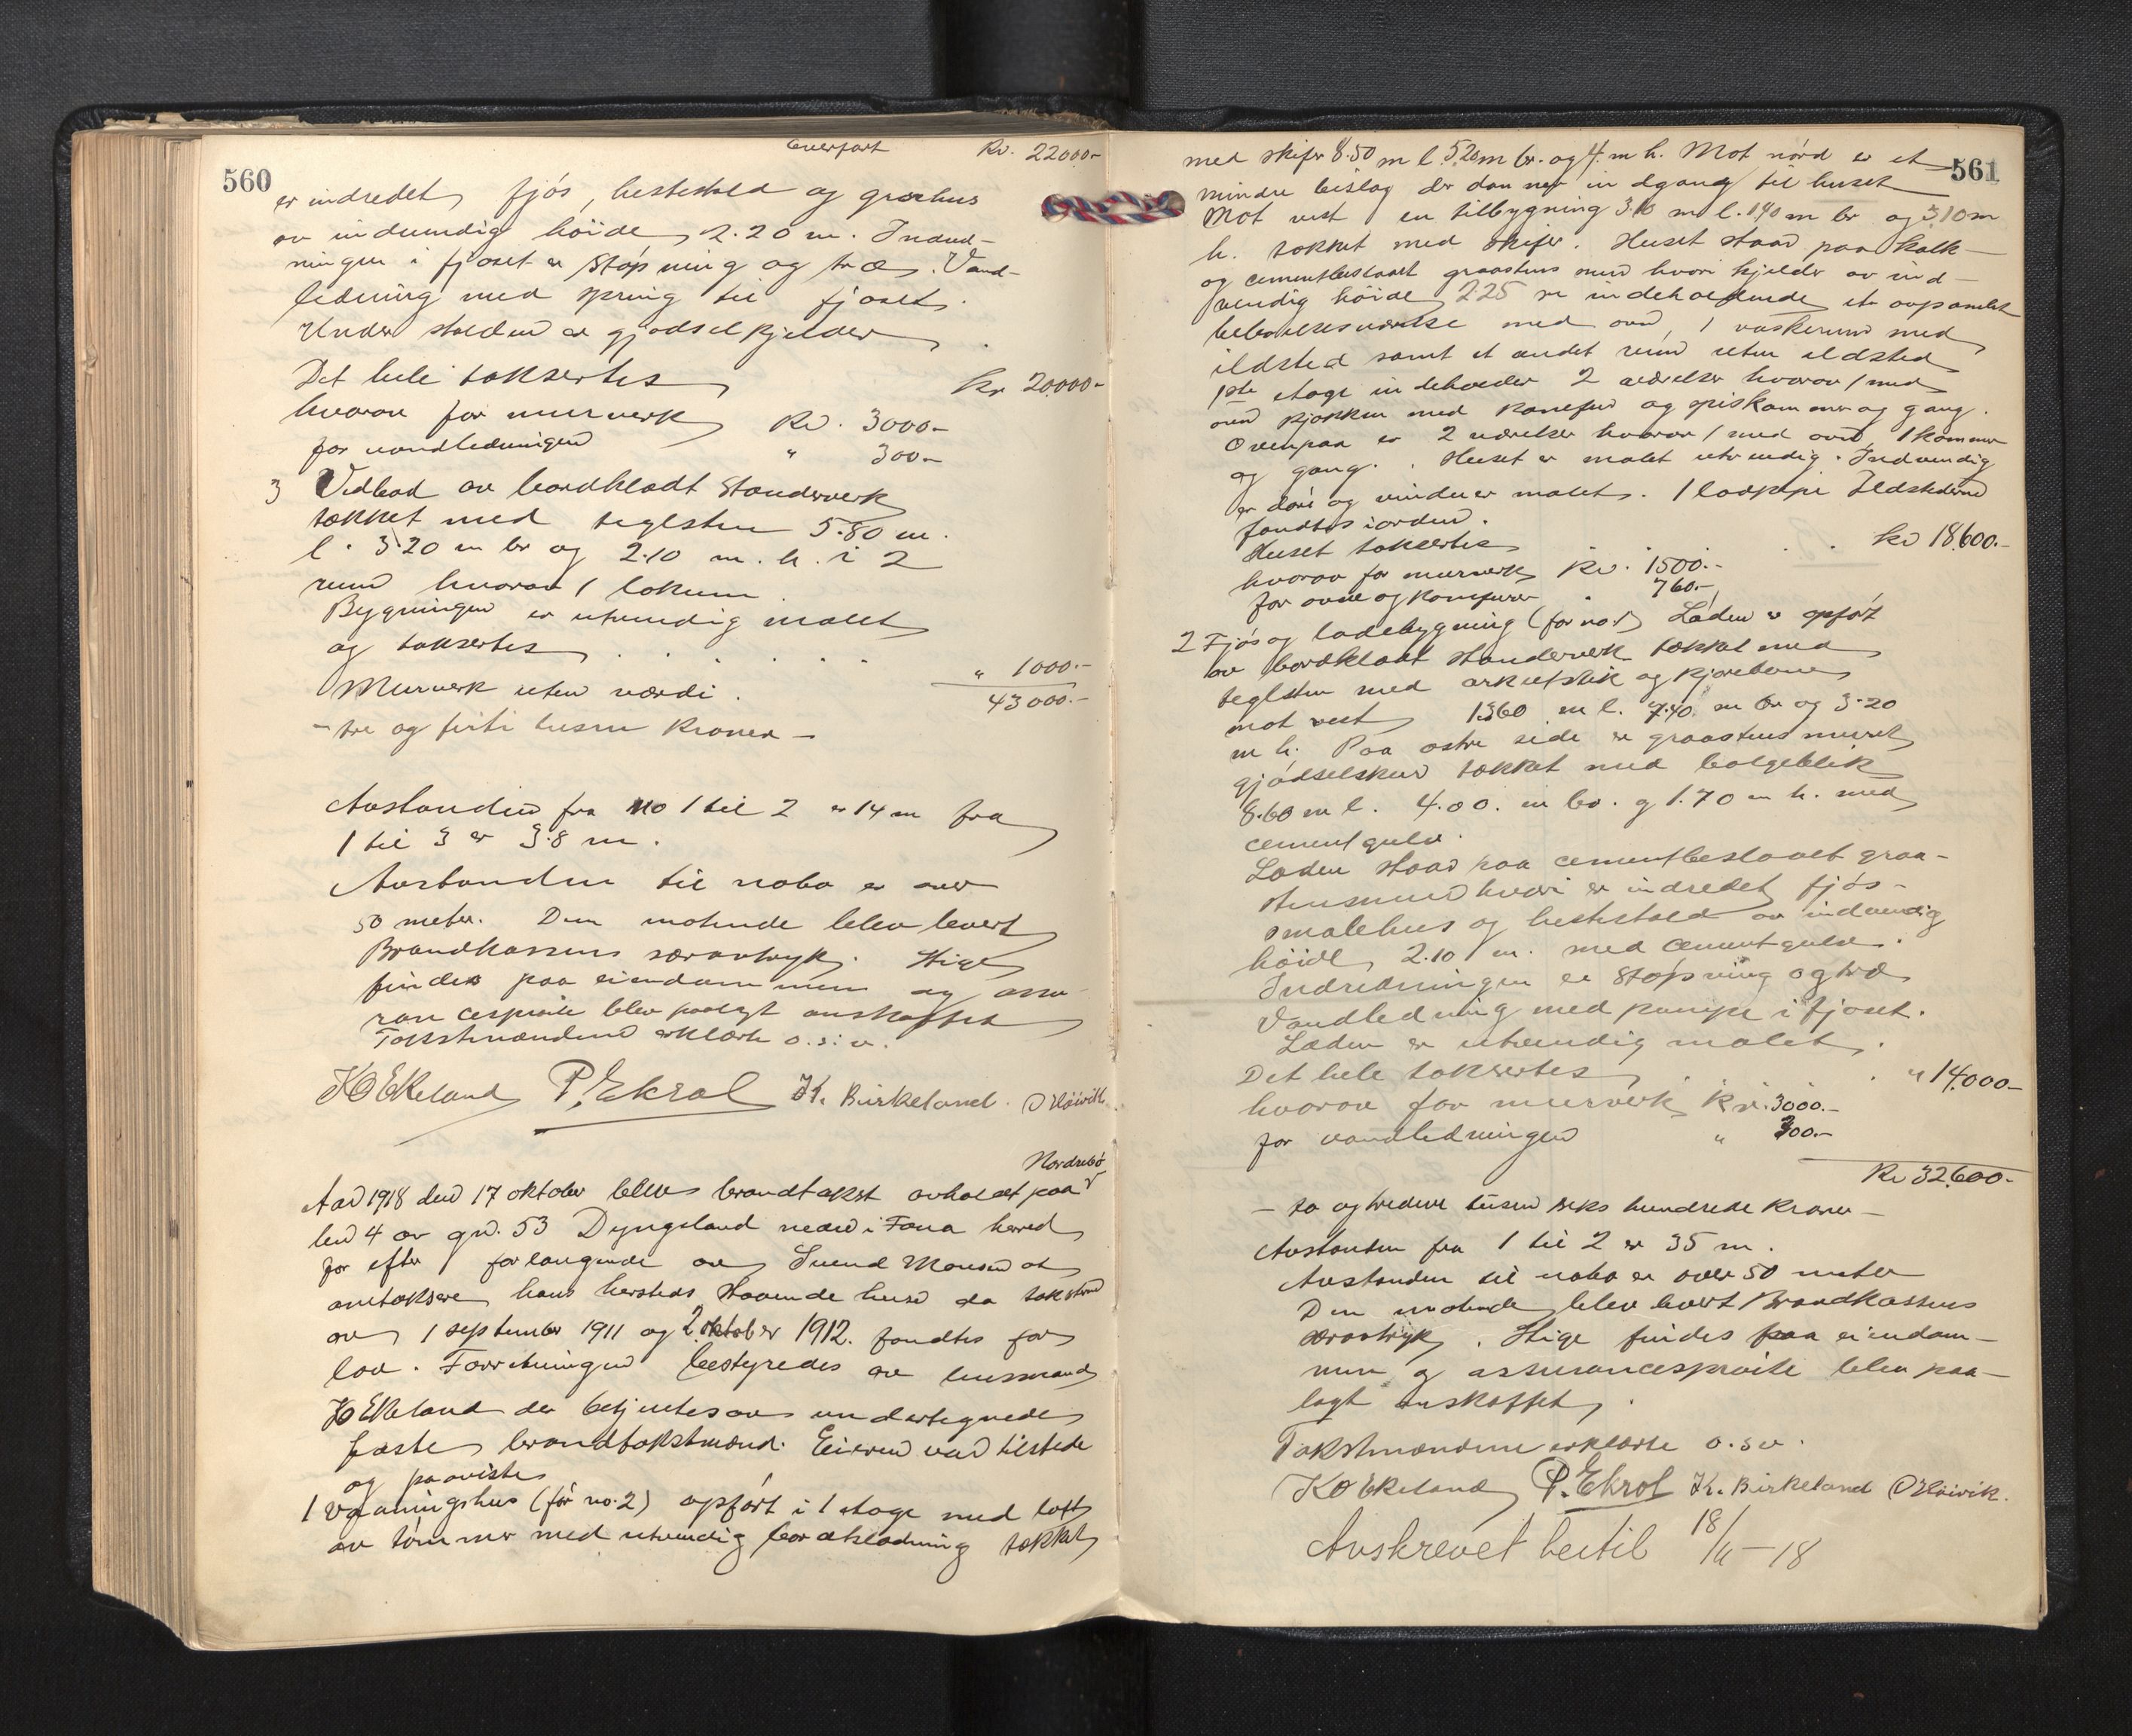 560
Overført Kr. 22000.-
er indredet fjös, hestestald og grishus
av indvendig höide 2.20 m. Indred-
ningen i fjoset er støpning og træ. Vand-
ledning med spring til fjoset.
Under stalden er gjødselkjelder
Det hele takseres Kr 20000.-
hvorav for murverk Kr. 3000.-
for vandledningen " 300.-
3 Vedbod av bordklædt standerverk
tækket med teglsten 5.80 m.
l. 3.20 m br og 2.10 m. h. i 2
rum hvorav 1 lokum.
Bygningen er utvendig malet
og takseres . . . . . " 1000.-
Murverk uten værdi. 43000.-
- tre og firti tusen kroner -
Avstanden fra no 1 til 2 er 14 m fra
1 til 3 er 3.8 m.
Avstanden til nabo er over
50 meter. Den møtende blev levert
Brandkassens særavtryk. Stige
findes paa eiendommen og assu-
rancesprøite blev paalagt anskaffet
Takstmændene erklærte o.s.v.
K O Ekeland P. Ekrol Kr. Birkeland O Høivik
Nordrebö
Aar 1918 den 17 oktober blev brandtakst avholdt paa
bno 4 av gno. 53 Dyngeland nedre i Fana herred
for efter forlangende av Svend Monsen at
omtaksere hans hersteds staaende huse da taksten
av 1 september 1911 og 2 oktober 1912. fandtes for
lav. Forretningen bestyredes av lensmand
K O Ekeland der betjentes av undertegnede
faste brandtakstmænd. Eieren var tilstede
og paaviste
1 Vaaningshus (før no. 2) opført i 1 etage med loft
av tömmer med utvendig bordklædning tækket
561
med skifer 8.50 m l. 5.20 m br. og 4. m h. Mot nord er et
mindre bislag der danner indgang til huset
Mot vest en tilbygning 3.10 m l. 1.40 m br og 3.10 m
h. tækket med skifer. Huset staar paa kalk-
og cementbestaaet graastens mur hvori kjelder av ind-
vendig höide 2.25 m indeholdende et avpanelet
beboelsesværelse med ovn, 1 vaskerum med
ildsted samt et andet rum uten ildsted
1ste etage indeholder 2 værelser hvorav 1 med
ovn kjøkken med komfur og spiskammer og gang.
Ovenpaa er 2 værelser hvorav 1 med ovn, 1 kammer
og gang. Huset er malet utvendig. Indvendig
er döre og vinduer malet. 1 løpipe Ildstederne
fandtes iorden.
Huset takseres . . . Kr 18600.-
hvorav for murverk Kr. 1500.-
for ovne og komfurer " 760.-
2 Fjös og ladebygning (før no 1) Laden er opført
av bordklædt standerverk tækket med
teglsten med arkutstik og kjørebro
mot vest 13.60 m l. 7.40 m br og 3.20
m h. Paa østre side er graastens muret
gjødselskur tækket med bølgeblik
8.60 m l. 4.00. m br. og 1.70 m h. med
cementgulv.
Laden staar paa cementbestaaet graa-
stensmur hvori er indredet fjøs-
smalehus og hestestald av indvendig
höide 2.10 m. med cementgulv.
Indredningen er støpning og træ
Vandledning med pumpe i fjoset.
Laden er utvendig malet.
Det hele takseres . . " 14000.-
hvorav for murverk Kr. 3000.-
for vandledningen " 300.-
Kr 32600.-
- to og tredive tusen seks hundrede kroner -
Avstanden fra 1 til 2 er 35 m.
Avstanden til nabo er over 50 meter
Den møtende blev levert Brandkassens
særavtryk. Stige findes paa eiendom-
men og assurancesprøite blev paa-
lagt anskaffet.
Takstmændene erklærte o.s.v.
K O Ekeland P. Ekrol Kr. Birkeland O Høivik.
Avskrevet hertil 18/11-18